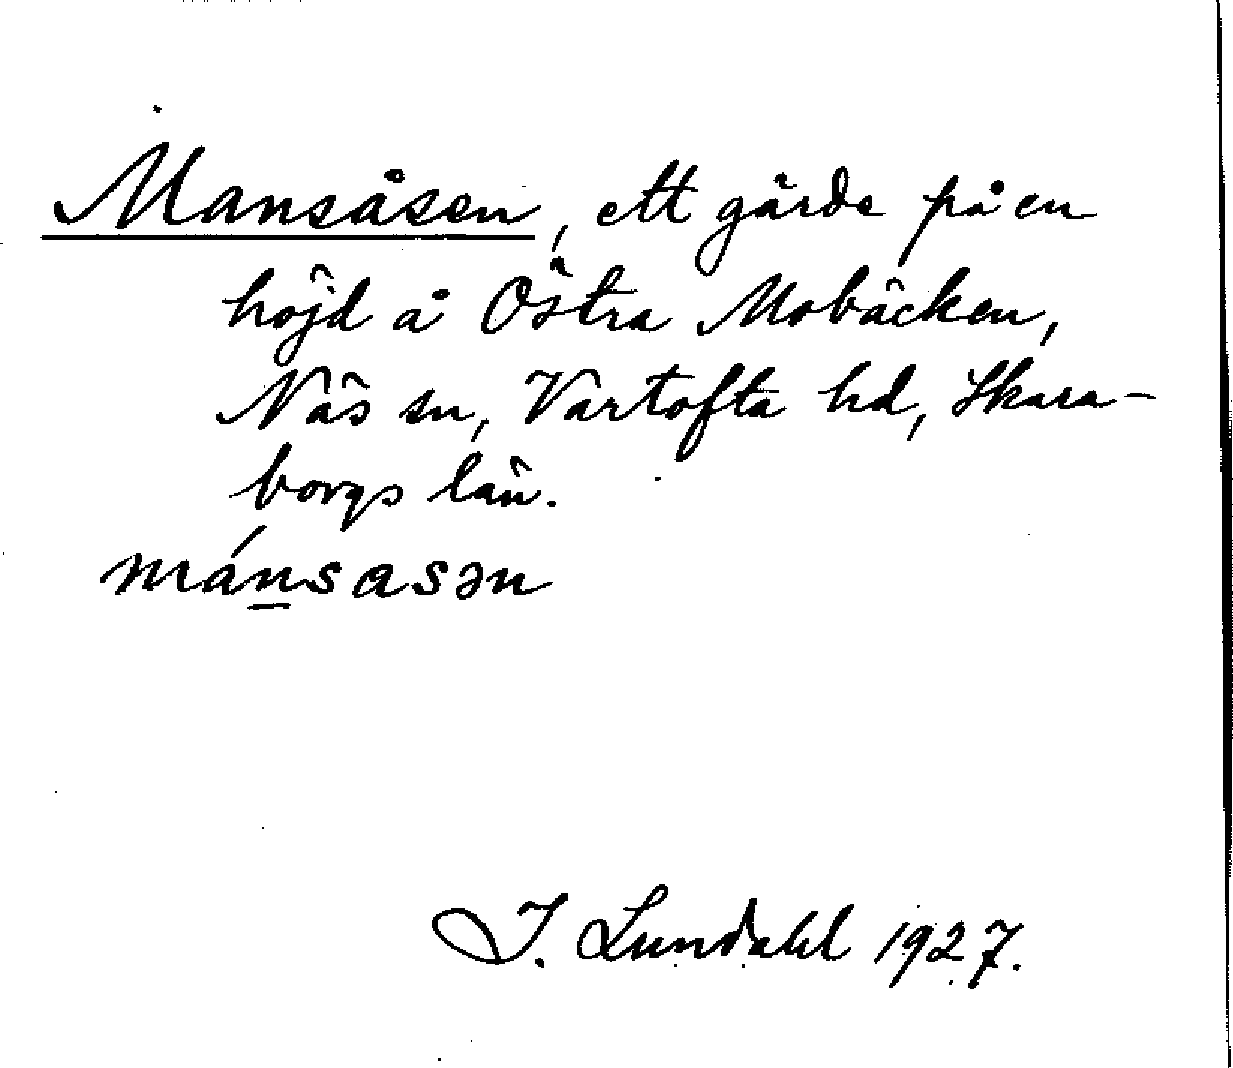 Mansåsen, ett gärde på en
höjd å Östra Mobäcken,
Näs sn, Vartofta hd, Skara-
borgs län.
mánsasən
I. Lundahl 1927.